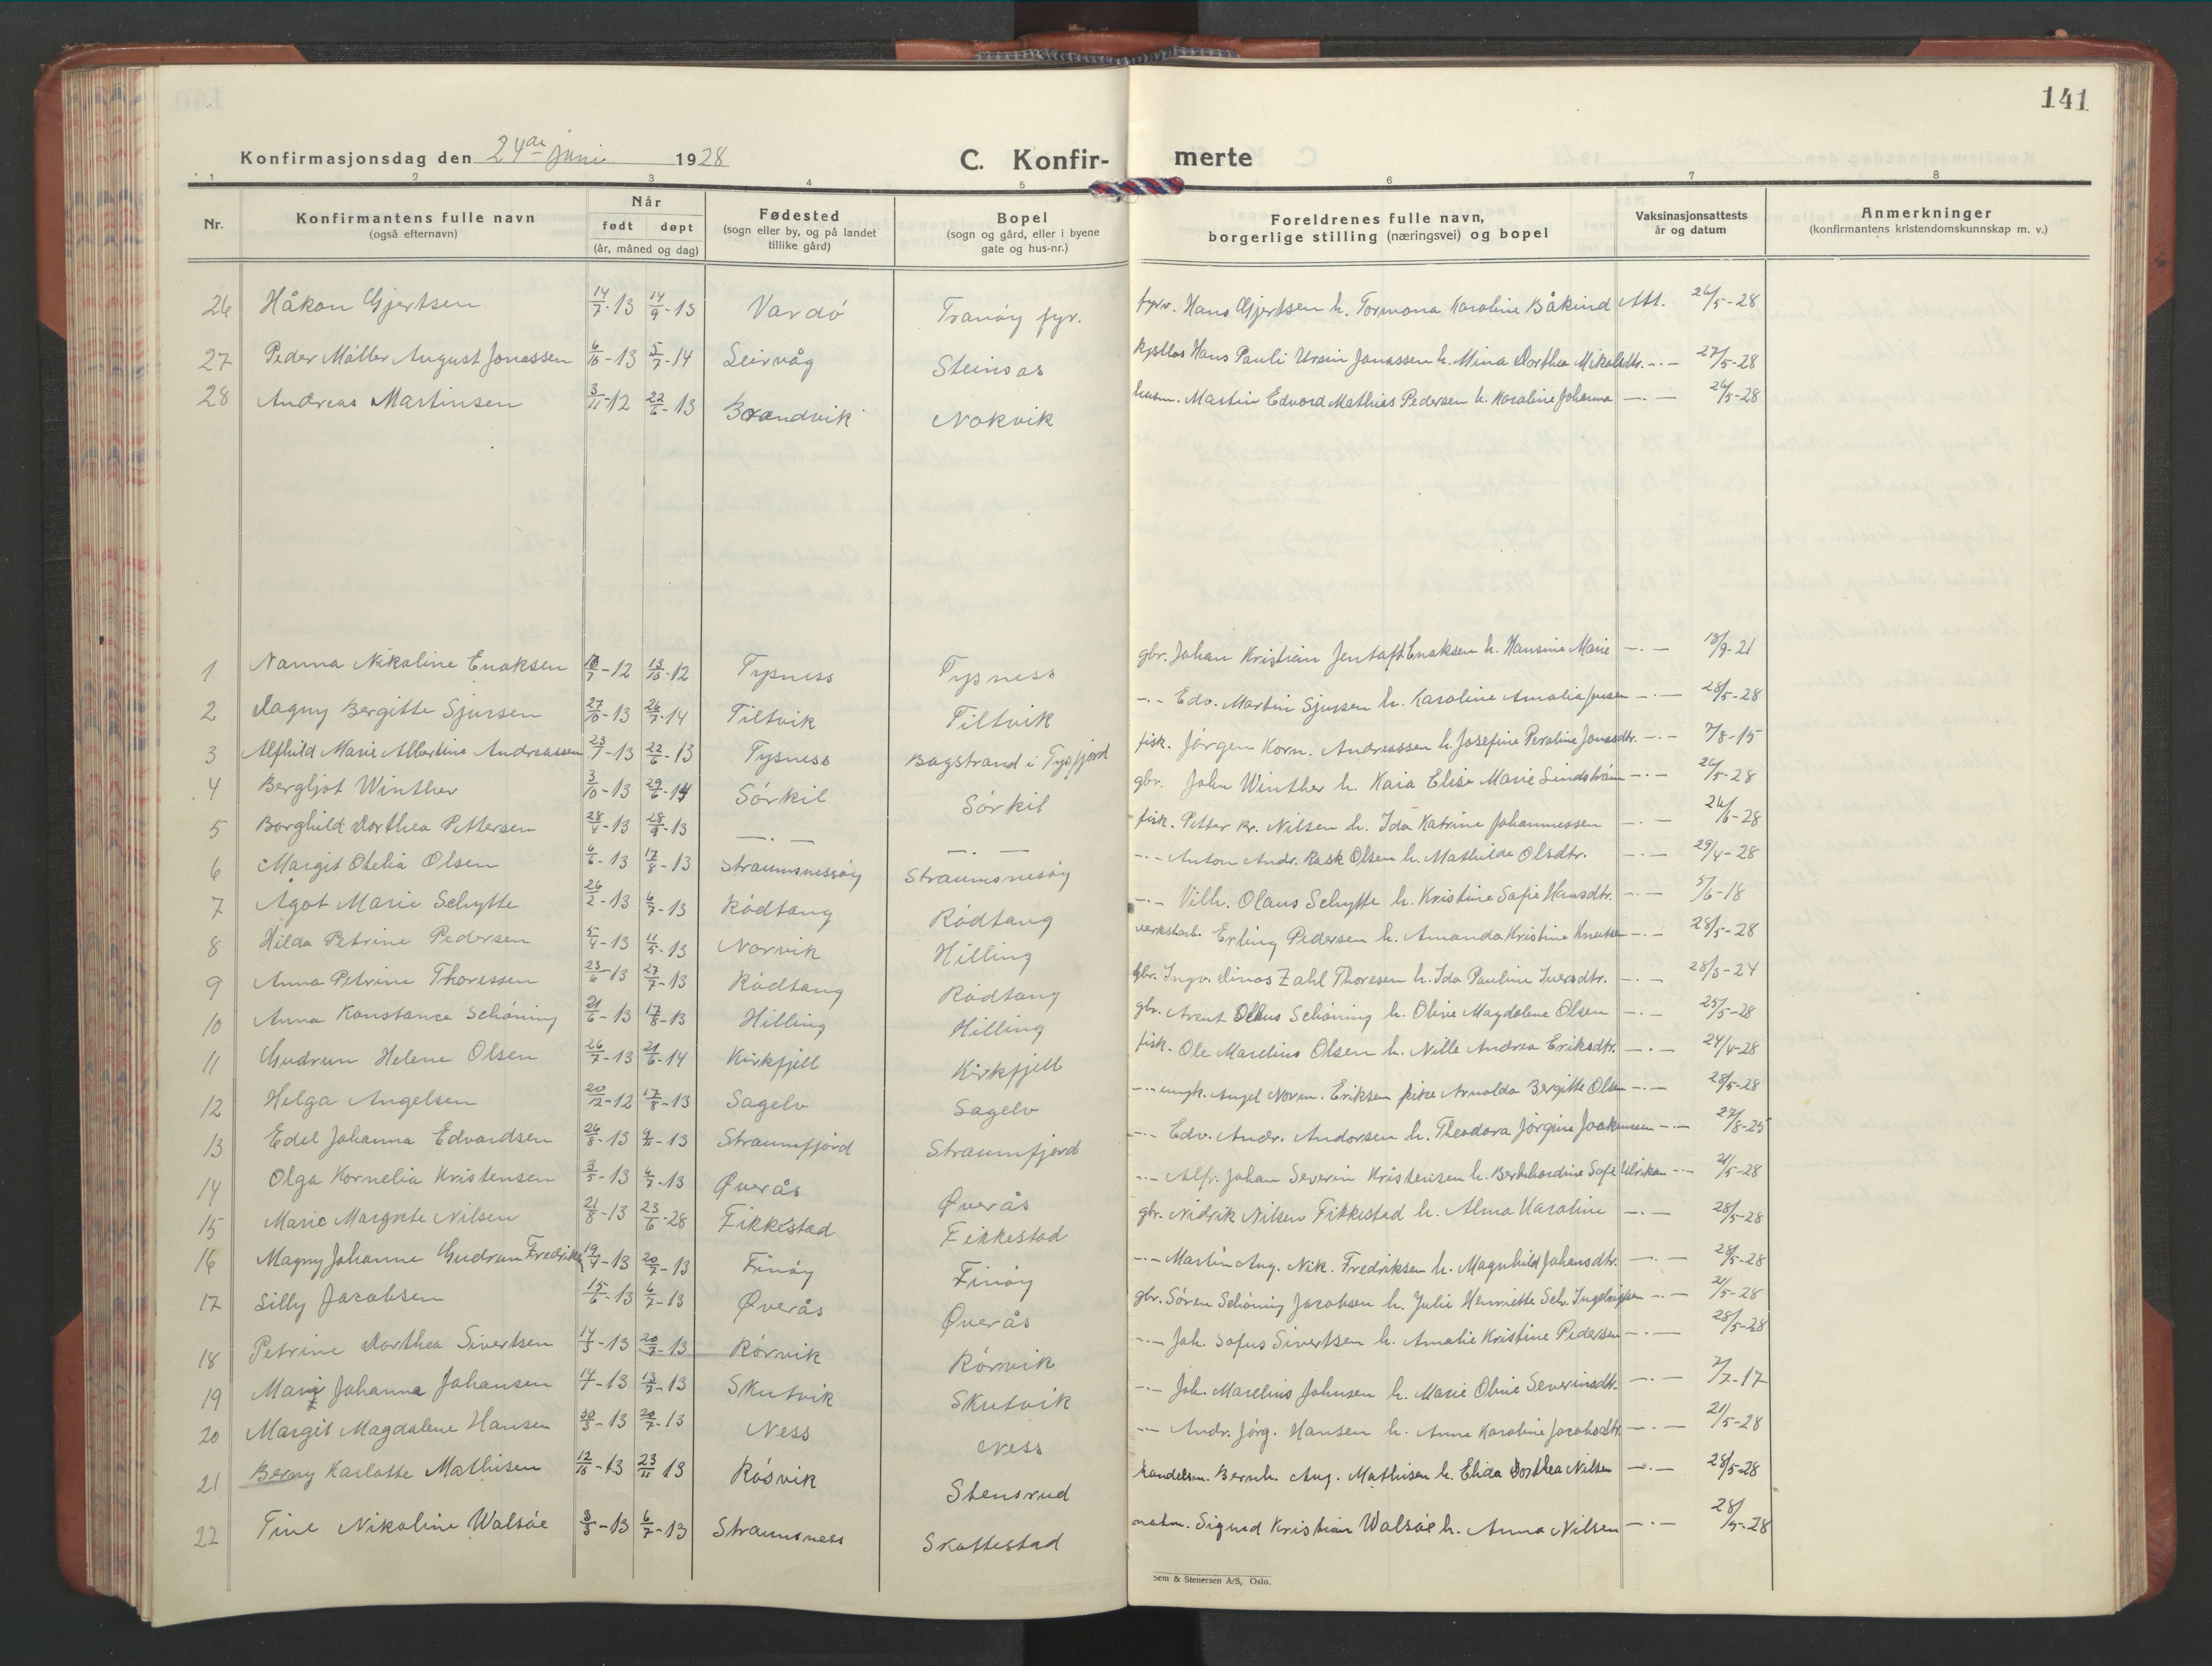 141
Konfirmasjonsdag den 24de juni 1928 C. Konfir- merte
1 2 3 4 5 6 7 8
Nr. Konfirmantens fulle navn (også efternavn) Når født døpt (år, måned og dag) Fødested (sogn eller by, og på landet tillike gård) Bopel (sogn og gård, eller i byene gate og hus-nr.) Foreldrenes fulle navn, borgerlige stilling (næringsvei) og bopel Vaksinasjonsattests år og datum Anmerkninger (konfirmantens kristendomskunnskap m. v.)
26 Håkon Gjertsen 14/7-13 14/9-13 Vardö Tranöy fyr. fyrv. Hans Gjertsen h. Tormona Karoline Båkind Att. 26/5-28
27 Peder Möller August Jonassen 6/10-13 5/7-14 Leirvåg Steinsas Hans Pauli Ursin Jonassen h. Mina Dorthea Mikalsdtr. -.- 27/5-28
28 Andreas Martinsen 3/11-12 22/6-13 Brandvik Nokvik husm. Martin Edvard Mathias Pedersen h. Karoline Johanna -.- 26/5-28
1 Nanna Nikoline Enoksen 13/10-12 Tysness Tysness gbr. Johan Kristian Jentoft Enoksen h. Hansine Marie -.- 13/9-21
2 Dagny Bergitte Sjursen 27/10-13 26/7-14 Tiltvik Tiltvik -.- Edv. Martin Sjursen h. Karoline Amalia -.- 28/5-28
3 Alfhild Marie Albertine Andreassen 23/7-13 22/6-13 Tysness Bogstrand i Tysfjord fisk. Jörgen Korn. Andreassen h. Josefine Peroline Jonasdtr. -.- 7/8-15
4 Bergljot Winther 3/10-13 29/6-14 Sörkil Sörkil gbr. John Winther h. Kaia Elise Marie Lindström -.- 26/5-28
5 Borghild Dorthea Pettersen 28/4-13 28/9-13 -.- -.- fisk. Petter Kr. Nilsen h. Ida Katrine Johannessen -.- 26/6-28
6 Margit Otelia Olsen 6/6-13 17/8-13 Straumsnesöy Straumsnesöy -.- Anton Andr. Rask Olsen h. Mathilde Olsdtr. -.- 29/4-28
7 Ågot Marie Schytte 26/2-13 6/7-13 Rödtang Rödtang -.- Vilh. Olaus Schytte h. Kristine Sofie Hansdtr. -.- 5/6-18
8 Hilda Petrine Pedersen 5/4-13 11/5-13 Norvik Hilling verkstarb. Erling Pedersen h. Amanda Kristine Knutsen -.- 28/5-28
9 Anna Petrine Thoressen 23/6-13 27/7-13 Rödtang Rödtang gbr. Ingv. Dinas Zahl Thoresen h. Ida Pauline Iversdtr. -.- 28/3-24
10 Anna Konstance Schöning 21/6-13 17/8-13 Hilling Hilling gbr. Arent Olaus Schöning h. Olive Magdalene Olsen -.- 25/5-28
11 Gudrun Helene Olsen 26/7-13 21/6-14 Kirkfjell Kirkfjell fisk. Ole Marelius Olsen h. Nille Andrea Eriksdtr. -.- 24/4-28
12 Helga Angelsen 20/12-12 17/8-13 Sagelv Sagelv -.- ungk. Angel Norm. Eriksen pike Arnolda Bergitte Olsen -.- 28/5-28
13 Edel Johanna Edvardsen 26/8-13 9/11-13 Straumfjord Straumfjord -.- Edv. Andr. Andorsen h. Theodora Jörgine Joakimsen -.- 27/8-25
14 Olga Kornelia Kristensen 3/5-13 6/7-13 Øverås Øverås -.- Alfr. Johan Severin Kristensen h. Bernhardine Sofie Ulriksen -.- 21/5-28
15 Marie Margrete Nilsen 21/8-13 23/6-28 Fikkestad Fikkestad gbr. Nidrik Nilsen Fikkestad h. Alma Karoline -.- 28/5-28
16 Magny Johanne Gudrun Fredriks 19/4-13 20/7-13 Finöy Finöy -.- Martin Aug. Nik. Fredriksen h. Magnhild Johansdtr. -.- 28/5-28
17 Lilly Jacobsen 15/6-13 6/7-13 Øverås Øverås gbr. Sören Schöning Jacobsen h. Julie Henriette Selv. Ingebrigtsen -.- 21/5-28
18 Petrine Dorthea Sivertsen 14/3-13 20/7-13 Rörvik Rörvik -.- Joh. Sofus Sivertsen h. Amalie Kristine Pedersen -.- 28/5-28
19 Marie Johanna Johansen 14/7-13 13/7-13 Skutvik Skutvik -.- Joh. Marelius Johnsen h. Marie Oline Severinsdtr. -.- 7/7-17
20 Margit Magdalene Hansen 30/3-13 20/7-13 Ness Ness -.- Andr. Jörg. Hansen h. Anne Karoline Jacobsdtr. -.- 21/5-28
21 Berny Karlotte Mathisen 12/10-13 23/11 13 Rösvik Stensrud handelsm. Bernh. Aug. Mathisen h. Elida Dorthea Nilsen -.- 28/5-28
22 Tine Nikoline Walsöe 3/3-13 6/7-13 Straumsness Skottestad Sigurd Kristian Walsöe h. Anna Nilsen -.- 28/5-28
Sem & Stenersen A/S, Oslo.